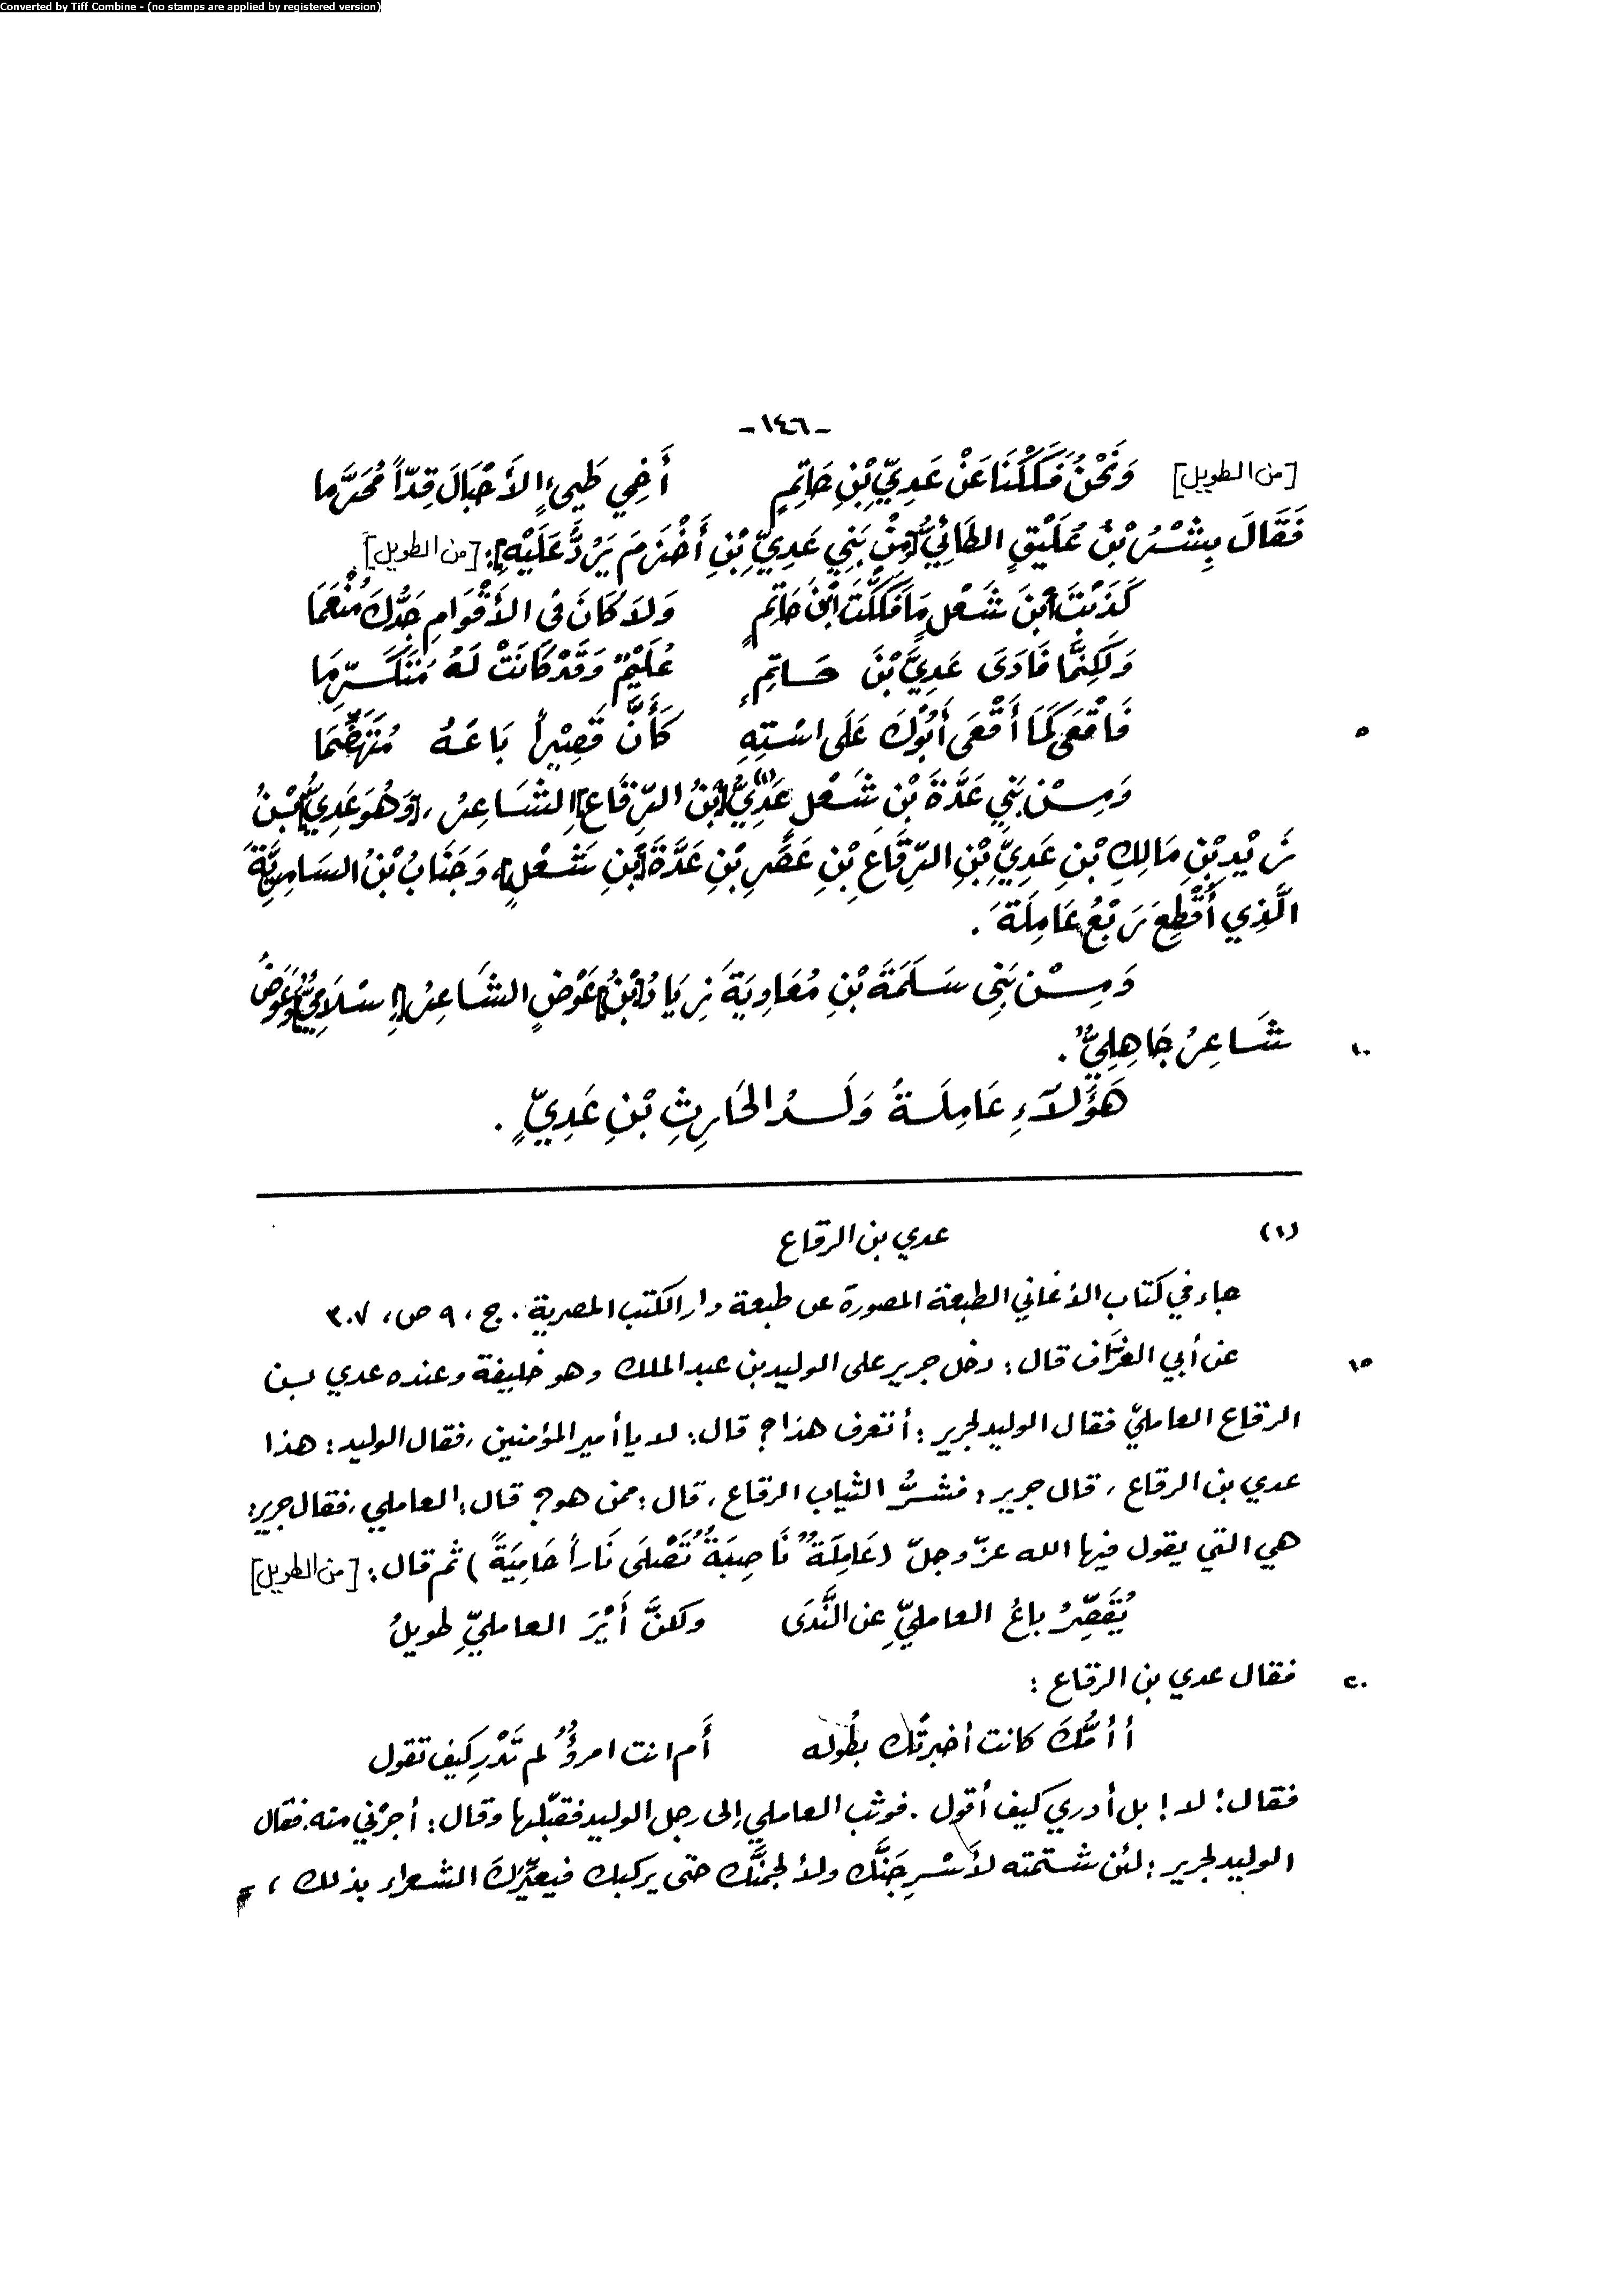 Converted by Tiff Combine - (no stamps are applied by registered version)
-١٤٦-
[من الطويل] وَنَحْنُ فَكَكْنَا عَنْ عَدِيِّ بْنِ حَاتِمٍ أَخِي طَيِّىءٍ الأَجْبَالَ قِدّاً مُحَرَّما
فَقَالَ بِشْرُ بْنُ عُلَيْقٍ الطَّائِيُّ [مِنْ بَنِي عَدِيِّ بْنِ أَخْزَمَ يَرُدُّ عَلَيْهِ]: [من الطويل]
كَذَبْتَ ابْنَ شَعْلٍ مَا فَكَكْتَ ابْنَ حَاتِمٍ وَلاَ كَانَ فى الأَقْوَامِ جَدُّكَ مُنْعِمَا
وَلَكِنَّمَا فَادَى عَدِيَّ بْنَ حَاتِمٍ عُلَيْمٌ وَقَدْ كَانَتْ لَهُ مُتَكَرّمَا
فَأَقْعَى كَمَا أَقْعَى أَبُوكَ عَلَى اسْتِهِ كَأَنَّ قَصِيْراً بَاعَهُ مُتَهَضِّمَا
٥
وَمِـنْ بَنِي عَدَّةَ بْنِ شَعْلٍ عَدِيُّ (١) [بْنُ الرِّقَاعِ] الشَّاعِرُ، [وَهُوَ عَدِيُّ] بْنُ
زَيْدِ بْنِ مَالِكِ بْنِ عَدِيِّ بْنِ الرِّقَاعِ بْنِ عَصَرِ بْنِ عَدَّةَ [بْنِ شَعْلٍ]، وَجَنَابُ بْنُ السَامِرِيَّةِ
الَّذِي أُقْطِعَ رَبْعُ عَامِلَةَ .
وَمِـنْ بَنِي سَلَمَةَ بْنِ مُعَاوِيَةَ زِيَادُ [بْنُ] عَوْضٍ الشَّاعِرُ [إِسْلَامِيٌّ] وَعَوْضٌ
شَاعِرٌ جَاهِلِيٌّ .
١٠
هَؤُلآءِ عَامِلَةُ وَلَـدُ الحَارِثِ بْنِ عَدِيٍّ .
(١) عدي بن الرقاع
جاء في كتاب الأغاني الطبعة المصورة عن طبعة دار الكتب المصرية . ج، ٩ ص، ٣٠٧
عن أبي الغرّاف قال: دخل جرير على الوليد بن عبد الملك وهو خليفة وعنده عدي بـن
١٥
الرقاع العامليّ فقال الوليد لجرير: أتعرف هذا؟ قال: لا يا أمير المؤمنين، فقال الوليد: هذا
عدي بن الرقاع، قال جرير: فشرُّ الثياب الرقاع، قال: ممن هو؟ قال: العاملي، فقال جرير:
هي التي يقول فيها الله عزّ وجلّ (عَامِلَةٌ نَاصِبَةٌ تَصْلَى نَاراً حَامِيَةً) ثم قال: [من الطويل]
يُقَصِّرُ باعُ العامليِّ عن النَّدَى ولكنَّ أَيْرَ العامليِّ طويلُ
فقال عدي بن الرقاع :
٢٠
أأمُّكَ كانت أخبرتك بطُوله أَم انت امرؤٌ لم تَدْرِ كيف تقول
فقال: لا! بل أدري كيف أقول . فوثب العاملي إلى رجل الوليد فقبّلها وقال: أجرْني منه. فقال
الوليد لجرير: لئن شتمته لأُسْرِجَنَّك ولألجمنَّك حتى يركبك فيعيِّرك الشعراء بذلك ،